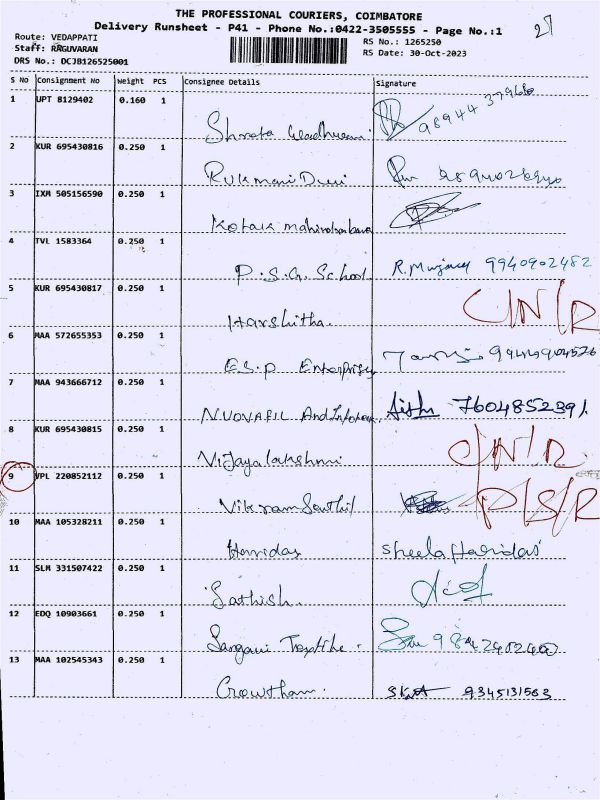 THE PROFESSIONAL COURIERS, COIMBATORE
27
Delivery Runsheet - P41 - Phone No.:0422-3505555 - Page No.:1
Route: VEDAPPATI
RS No.: 1265250
Staff: RAGUVARAN
RS Date: 30-Oct-2023
DRS No.: DCJB126525001
S No Consignment No Weight PCS Consignee Details Signature
1 UPT 8129402 0.160 1
2 KUR 695430816 0.250 1
Rukmani Devi
3 IXM 505156590 0.250 1
Kotak
4 TVL 1583364 0.250 1
P.S.G. School 9940902482
5 KUR 695430817 0.250 1
Harshitha. C/N/R
6 MAA 572655353 0.250 1
E.S.P Enterprises
7 MAA 943666712 0.250 1
7604852391
8 KUR 695430815 0.250 1
Vijayalakshmi
9 VPL 220852112 0.250 1
Vikram Senthil P/S/R
10 MAA 105328211 0.250 1
Haridas Sheela Haridas
11 SLM 331507422 0.250 1
Sathish.
12 EDQ 10903661 0.250 1
Textile.
13 MAA 102545343 0.250 1
Growtham. 9345131563